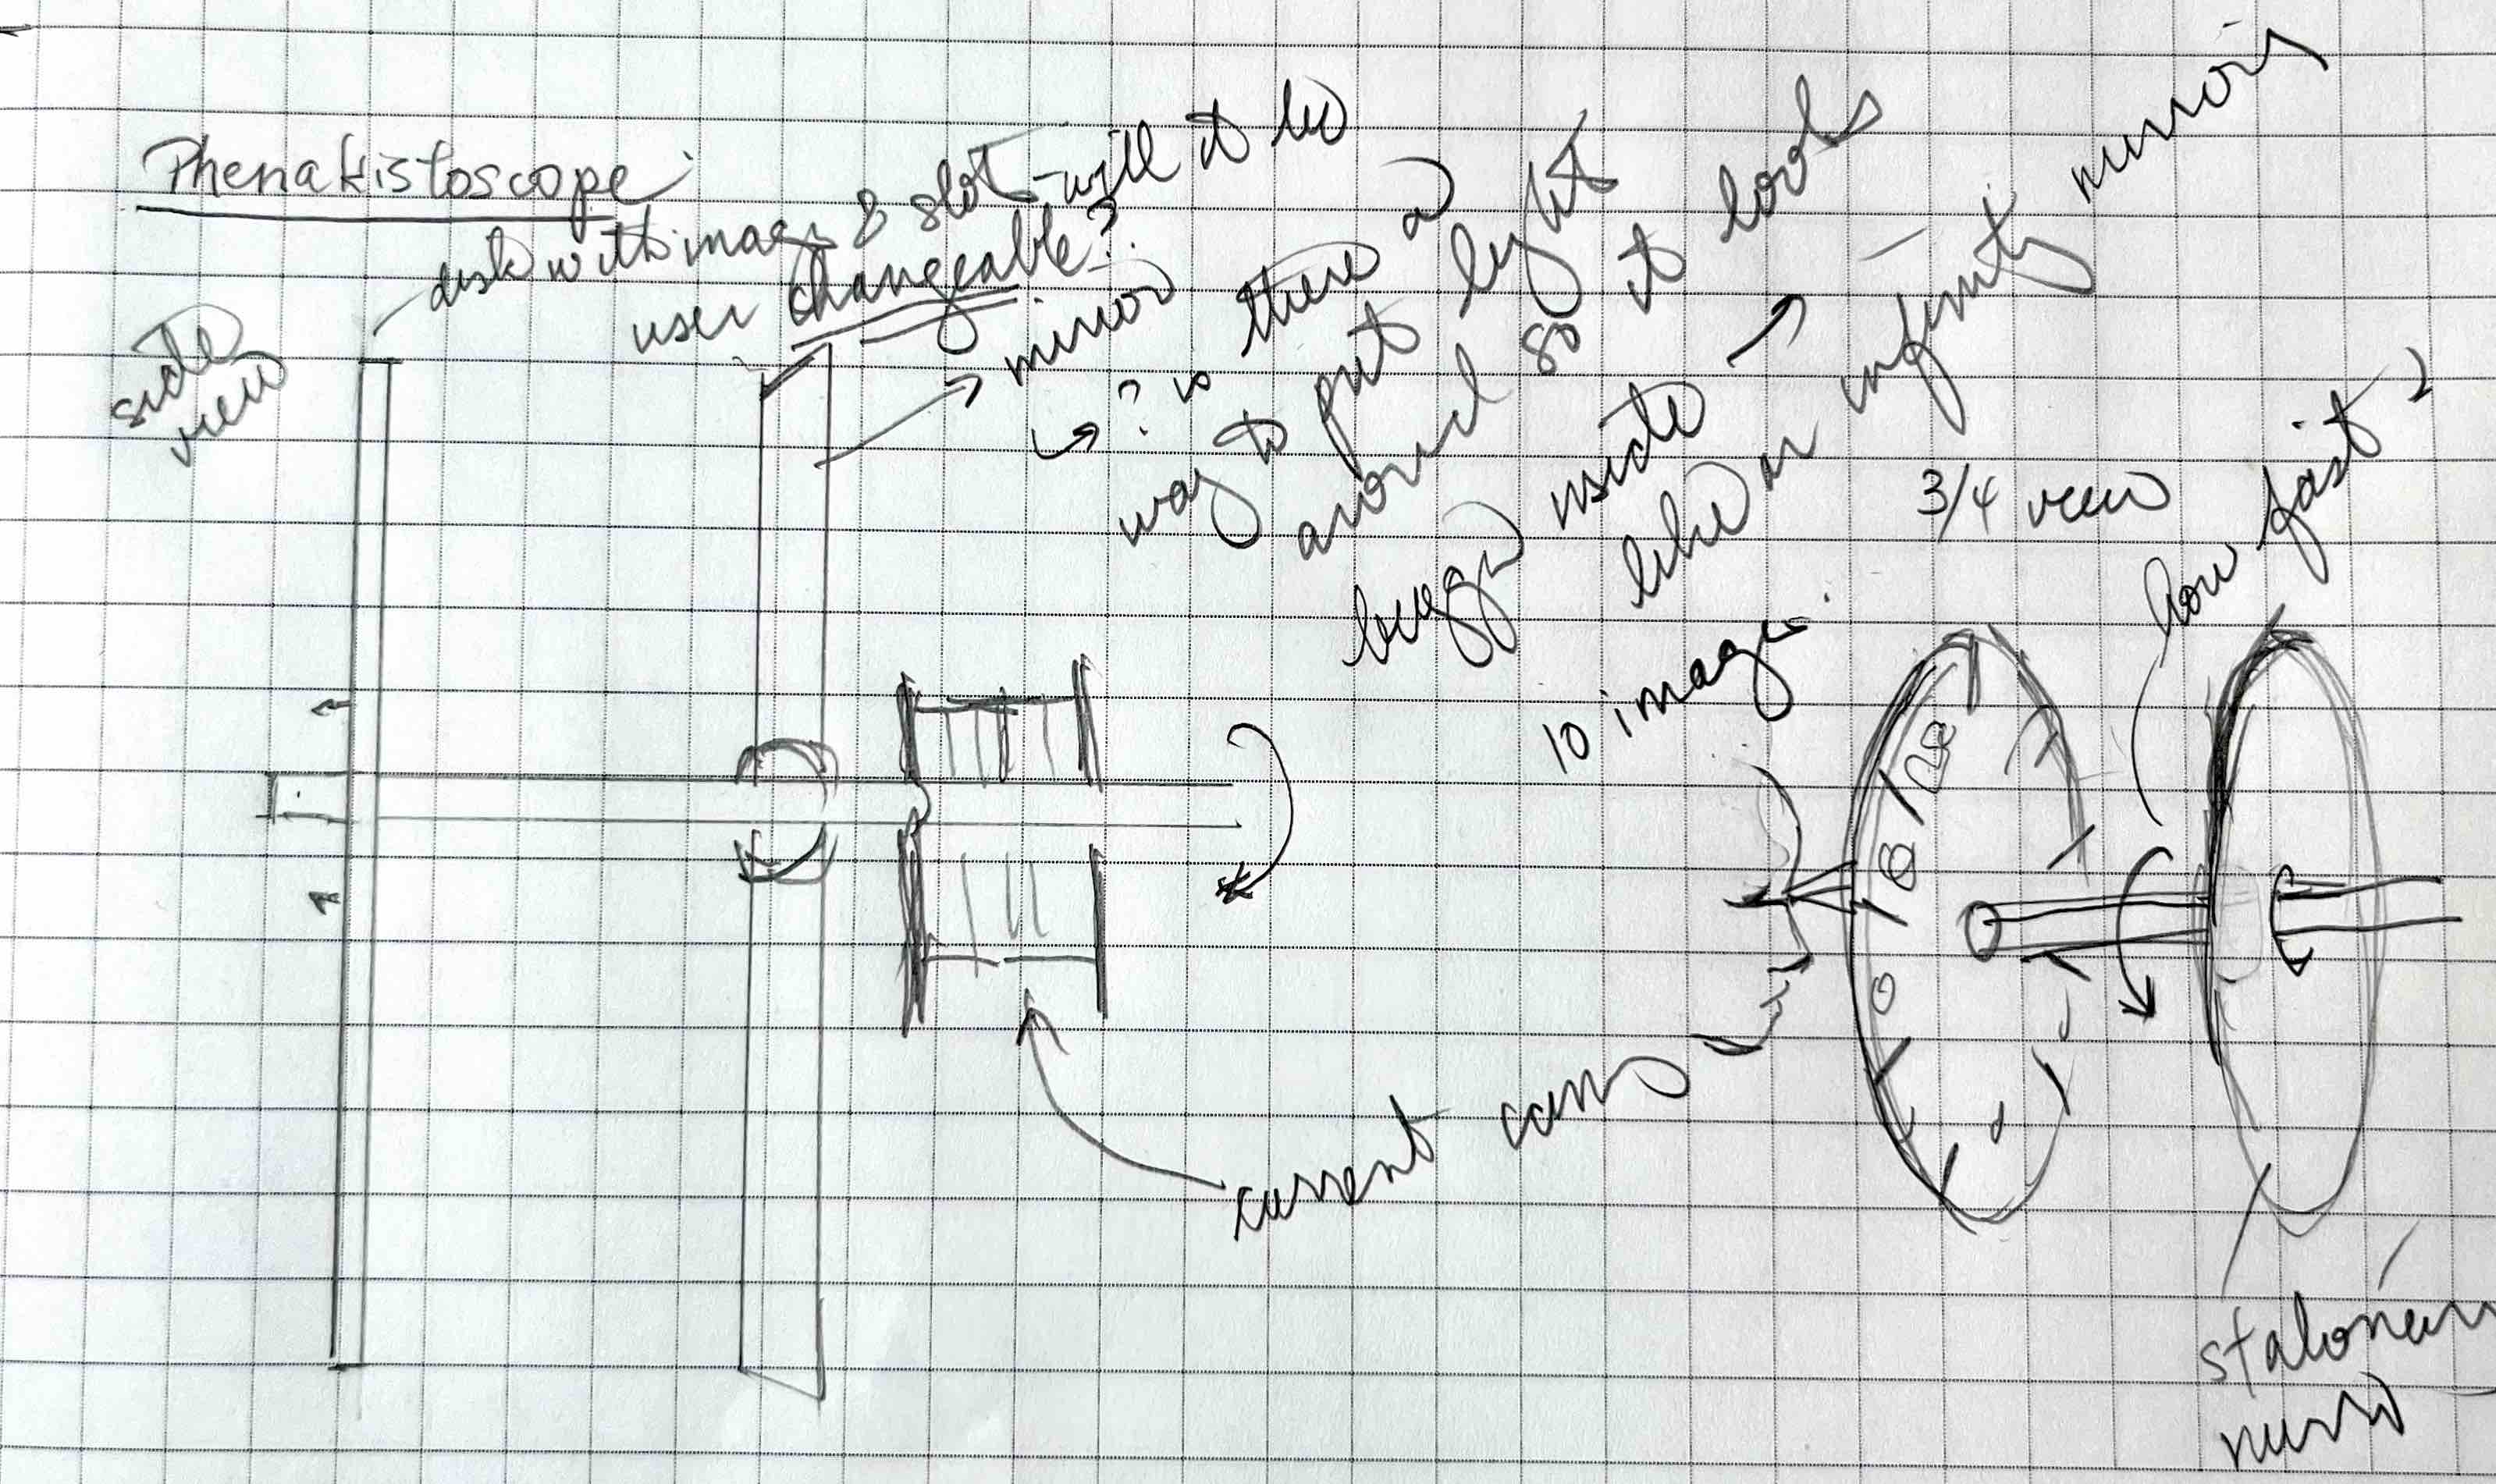 Phenakistoscope
side
view
disk with images & slots - will it be
user changeable?
mirror
? is there a
way to put light
around so it looks
bigger inside
like an infinity mirror
10 images.
3/4 view
how fast?
current cam
stationary
mirror